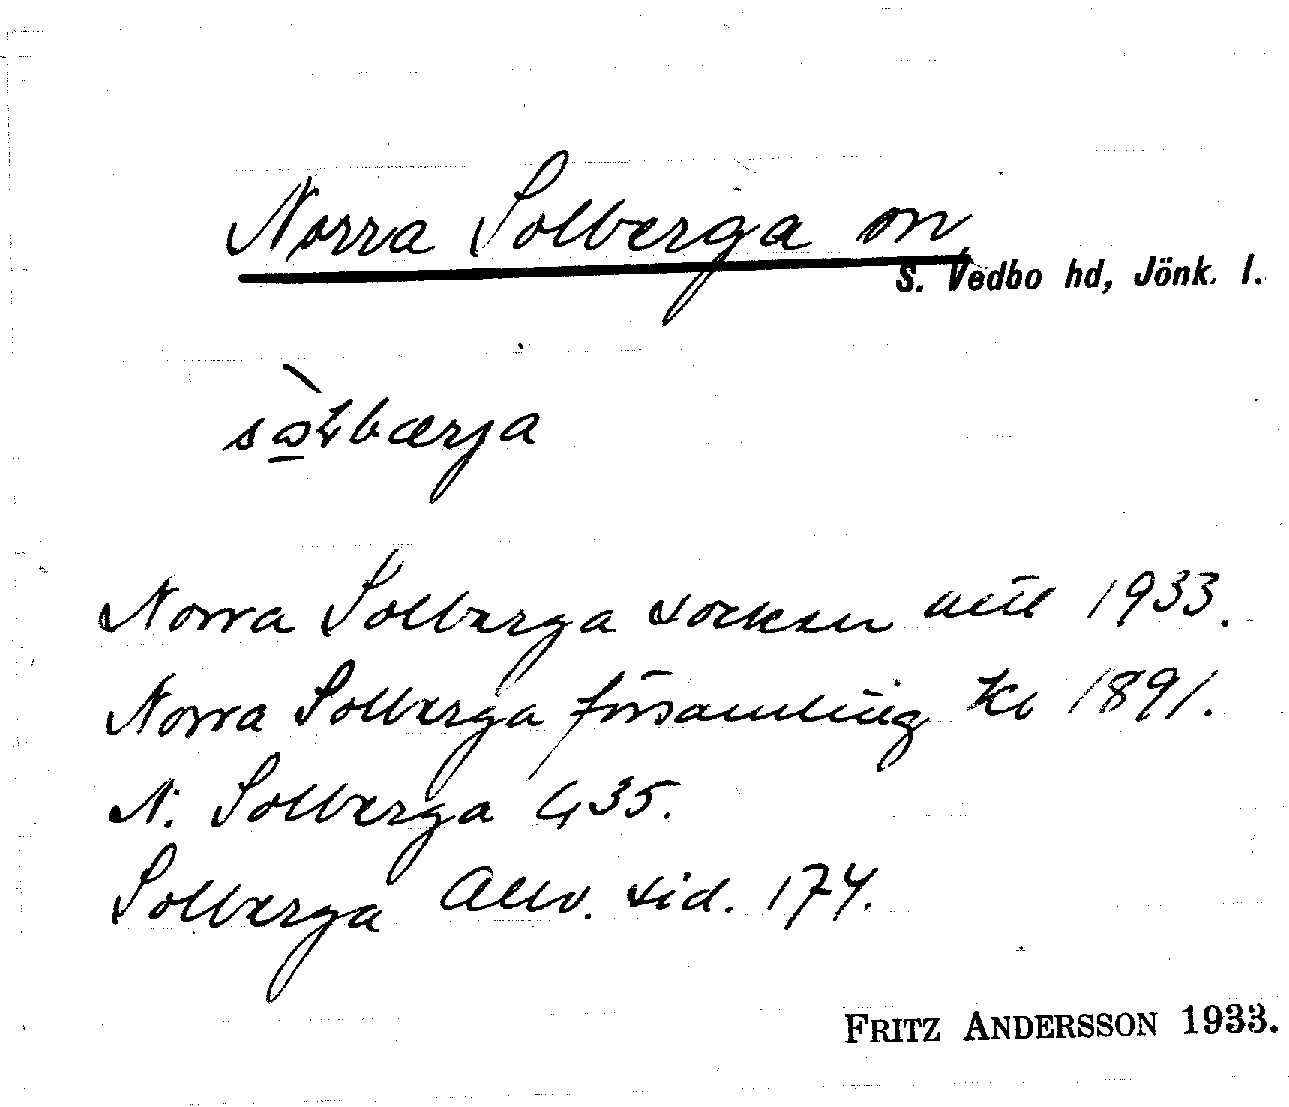 Norra Solberga sn
S. Vedbo hd, Jönk. l.
Norra Solberga socken 1933.
Norra Solberga församling Kb 1891.
N. Solberga G 35.
Solberga Allv. sid. 174.
FRITZ ANDERSSON 1933.